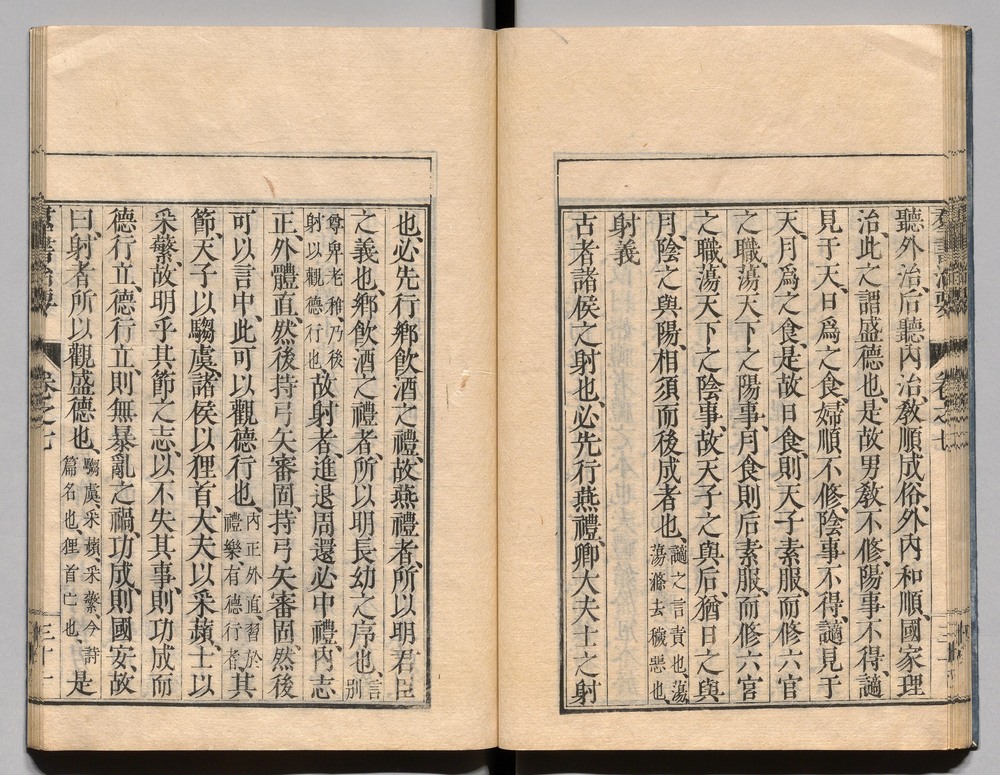 羣書治要 卷之七
聽外治、后聽內治、敎順成俗、外內和順、國家理
治、此之謂盛德也、是故男敎不修、陽事不得、謫
見于天、日爲之食、婦順不修、陰事不得、謫見于
天、月爲之食、是故日食、則天子素服、而修六官
之職、蕩天下之陽事、月食則后素服、而修六宮
之職、蕩天下之陰事、故天子之與后、猶日之與
月、陰之與陽、相須而後成者也、謫之言責也、蕩
蕩滌去穢惡也、
射義
古者諸侯之射也、必先行燕禮、卿大夫士之射
也、必先行鄕飮酒之禮、故燕禮者、所以明君臣
之義也、鄕飮酒之禮者、所以明長幼之序也、言別
尊卑老稚、乃後
射以觀德行也、故射者、進退周還必中禮、內志
正、外體直、然後持弓矢審固、持弓矢審固、然後
可以言中、此可以觀德行也、內正外直、習於
禮樂、有德行者、其
節天子以騶虞、諸侯以狸首、大夫以采蘋、士以
采蘩、故明乎其節之志、以不失其事、則功成而
德行立、德行立、則無暴亂之禍、功成、則國安、故
曰、射者所以觀盛德也、騶虞、采蘋、采蘩、今詩
篇名也、狸首亡也、是
羣書治要 卷之七 三十一